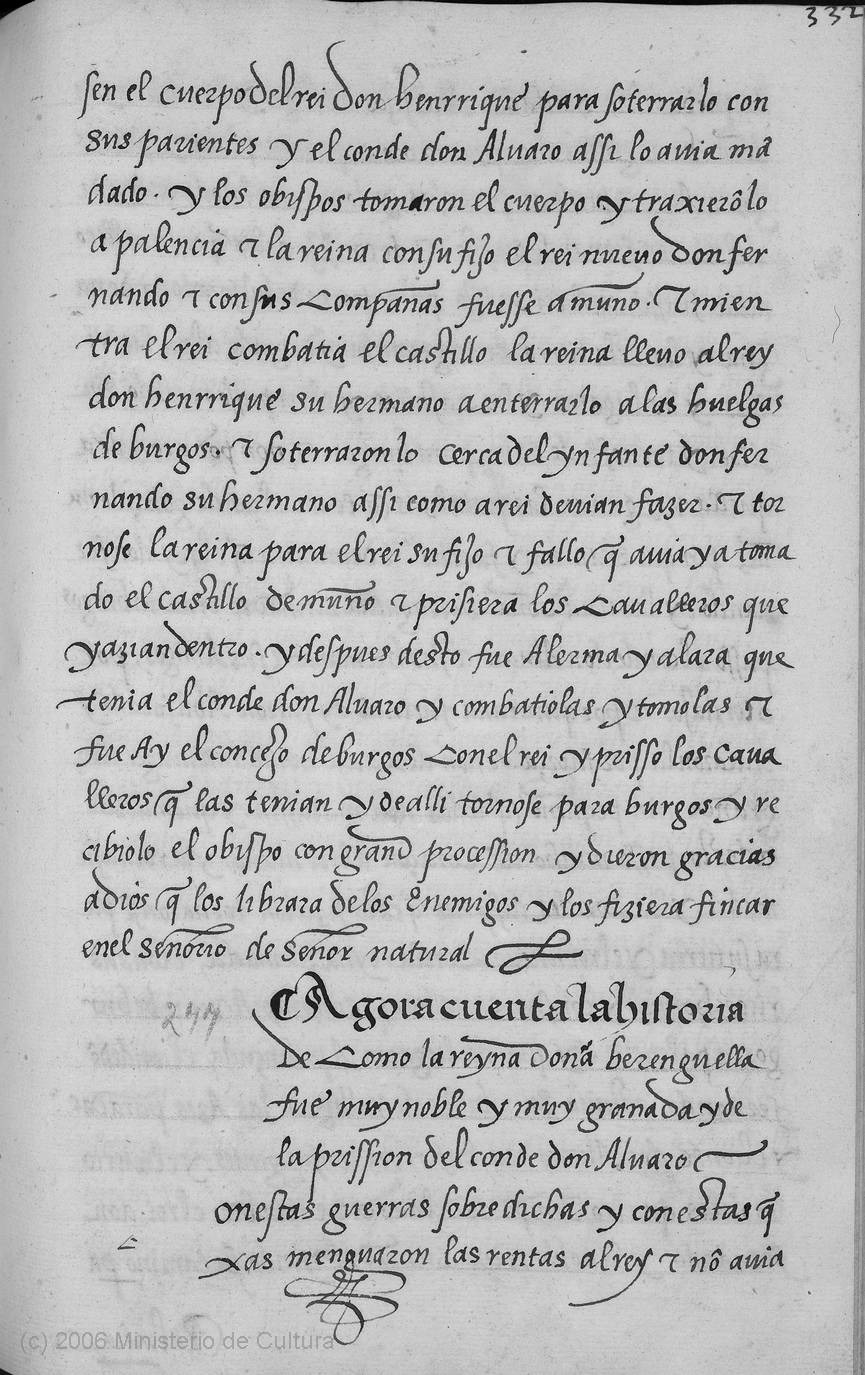 332
sen el cuerpo del rei don henrrique para soterrarlo con
sus parientes y el conde don Alvaro assi lo avia mã
dado. y los obispos tomaron el cuerpo y traxierõlo
a palencia ⁊ la reina con su fijo el rei nuevo don fer
nando ⁊ con sus Compañas fuesse a muño. ⁊ mien
tra el rei combatia el castillo la reina llevo al rey
don henrrique su hermano a enterrarlo a las huelgas
de burgos. ⁊ soterraronlo cerca del ynfante don fer
nando su hermano assi como a rei devian fazer. ⁊ tor
nose la reina para el rei su fijo ⁊ fallo q̃ avia ya toma
do el castillo de muño ⁊ prisiera los Cavalleros que
yazian dentro. y despues desto fue A lerma y a lara que
tenia el conde don Alvaro y combatiolas y tomolas ⁊
fue Ay el concejo de burgos Con el rei y prisso los Cava
lleros q̃ las tenian y de alli tornose para burgos y re
cibiolo el obispo con grand procession y dieron gracias
a dios q̃ los librara de los Enemigos y los fiziera fincar
en el señorio de señor natural
¶ Agora cuenta la historia
247
De Como la reyna Doña berenguella
fue muy noble y muy granada y de
la prission del conde don Alvaro
onestas guerras sobredichas y con estas q̃
xas menguaron las rentas al rey ⁊ nõ avia
(c) 2006 Ministerio de Cultura